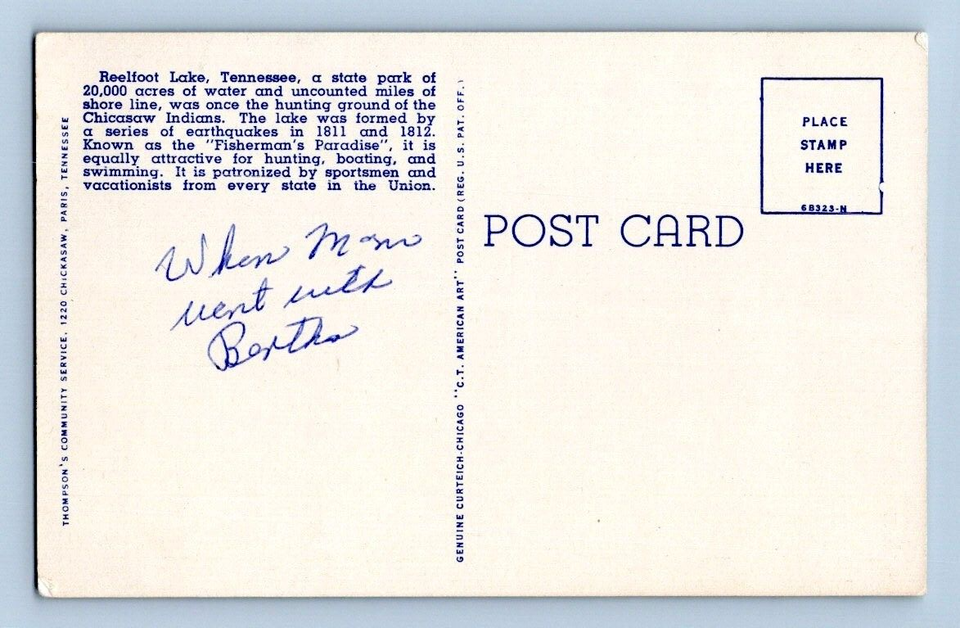 Reelfoot Lake, Tennessee, a state park of
20,000 acres of water and uncounted miles of
shore line, was once the hunting ground of the
Chicasaw Indians. The lake was formed by
a series of earthquakes in 1811 and 1812.
Known as the "Fisherman's Paradise", it is
equally attractive for hunting, boating, and
swimming. It is patronized by sportsmen and
vacationists from every state in the Union.
When Mom
went with
Bertha
THOMPSON'S COMMUNITY SERVICE, 1220 CHICKASAW, PARIS, TENNESSEE
GENUINE CURTEICH-CHICAGO "C.T. AMERICAN ART" POST CARD (REG. U.S. PAT. OFF.)
POST CARD
PLACE
STAMP
HERE
6B323-N